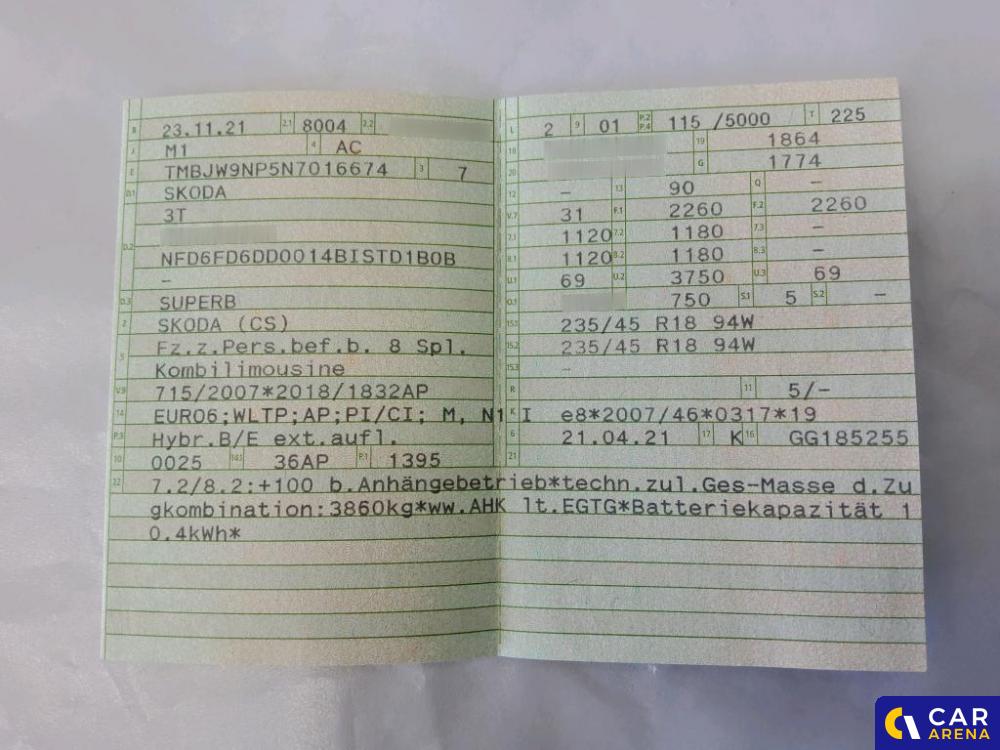 B 23.11.21 2.1 8004 2.2
J M1 4 AC
E TMBJW9NP5N7016674 3 7
D.1 SKODA
3T
D.2
NFD6FD6DD0014BISTD1B0B
–
D.3 SUPERB
2 SKODA (CS)
5 Fz.z.Pers.bef.b. 8 Spl.
Kombilimousine
V.9 715/2007*2018/1832AP
14 EURO6;WLTP;AP;PI/CI; M, N1 I
P.3 Hybr.B/E ext.aufl.
10 0025 14.1 36AP P.1 1395
L 2 9 01 P.2 P.4 115 /5000 T 225
18 19 1864
20 G 1774
12 – 13 90 Q –
V.7 31 F.1 2260 F.2 2260
7.1 1120 7.2 1180 7.3 –
8.1 1120 8.2 1180 8.3 –
U.1 69 U.2 3750 U.3 69
O.1 750 S.1 5 S.2 –
15.1 235/45 R18 94W
15.2 235/45 R18 94W
15.3 –
R 11 5/–
K e8*2007/46*0317*19
6 21.04.21 17 K 16 GG185255
21
22 7.2/8.2:+100 b.Anhängebetrieb*techn.zul.Ges-Masse d.Zu
gkombination:3860kg*ww.AHK lt.EGTG*Batteriekapazität 1
0.4kWh*
CAR
ARENA